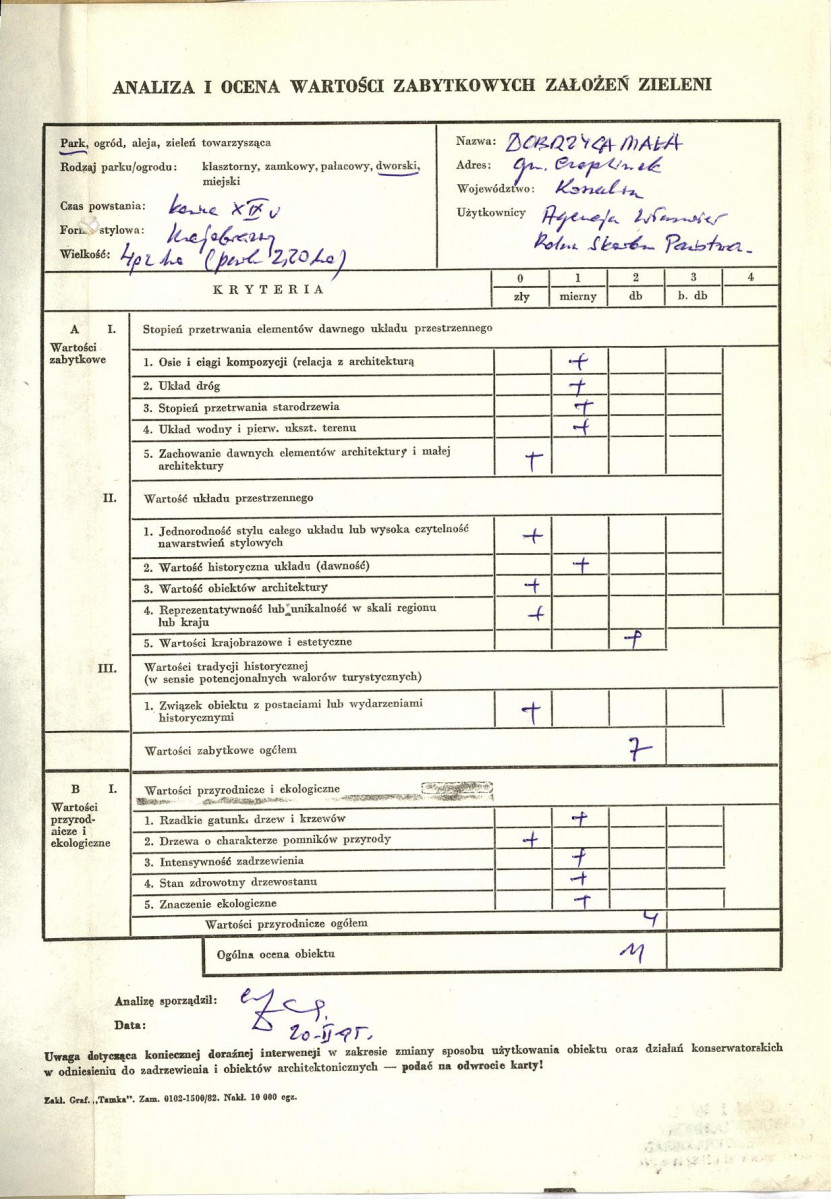 ANALIZA I OCENA WARTOŚCI ZABYTKOWYCH ZAŁOŻEŃ ZIELENI
Park, ogród, aleja, zieleń towarzysząca
Rodzaj parku/ogrodu: klasztorny, zamkowy, pałacowy, dworski,
miejski
Czas powstania: koniec XIX w
Forma stylowa: Krajobrazowy
Wielkość: 4,02 ha (park 2,20 ha)
Nazwa: DOBRZYCA MAŁA
Adres: gm. Czaplinek
Województwo: Koszalin
Użytkownicy Agencja Własności
Rolnej Skarbu Państwa
KRYTERIA
0 1 2 3 4
zły mierny db b. db
A I. Stopień przetrwania elementów dawnego układu przestrzennego
Wartości
zabytkowe
1. Osie i ciągi kompozycji (relacja z architekturą +
2. Układ dróg +
3. Stopień przetrwania starodrzewia +
4. Układ wodny i pierw. ukszt. terenu +
5. Zachowanie dawnych elementów architektury i małej
architektury +
II. Wartość układu przestrzennego
1. Jednorodność stylu całego układu lub wysoka czytelność
nawarstwień stylowych +
2. Wartość historyczna układu (dawność) +
3. Wartość obiektów architektury +
4. Reprezentatywność lub unikalność w skali regionu
lub kraju +
5. Wartości krajobrazowe i estetyczne +
III. Wartości tradycji historycznej
(w sensie potencjonalnych walorów turystycznych)
1. Związek obiektu z postaciami lub wydarzeniami
historycznymi +
Wartości zabytkowe ogółem 7
B I. Wartości przyrodnicze i ekologiczne
Wartości
przyrod-
nicze i
ekologiczne
1. Rzadkie gatunki drzew i krzewów +
2. Drzewa o charakterze pomników przyrody +
3. Intensywność zadrzewienia +
4. Stan zdrowotny drzewostanu +
5. Znaczenie ekologiczne +
Wartości przyrodnicze ogółem 4
Ogólna ocena obiektu 11
Analizę sporządził:
Data: 20-II-95r.
Uwaga dotycząca koniecznej doraźnej interwencji w zakresie zmiany sposobu użytkowania obiektu oraz działań konserwatorskich
w odniesieniu do zadrzewienia i obiektów architektonicznych — podać na odwrocie karty!
Zakł. Graf. „Tamka". Zam. 0102-1500/82. Nakł. 10 000 egz.